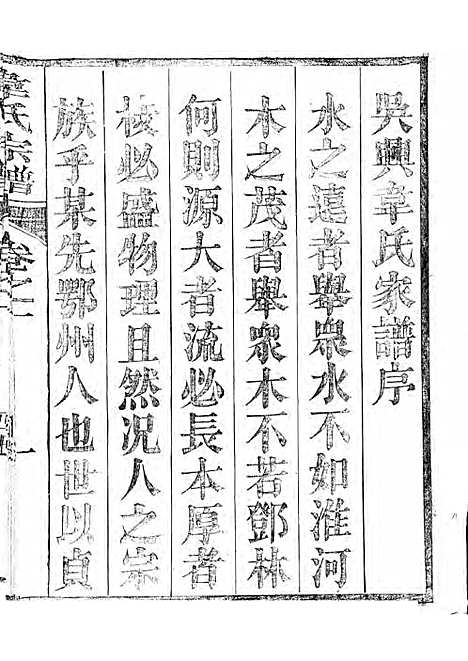 吳興韋氏家譜序
水之遠者舉眾水不如淮河
木之茂者舉眾木不若鄧林
何則源大者流必長本厚者
枝必盛物理且然況人之宗
族乎某先鄂州人也世以貞
韋氏宗譜 卷之二 一